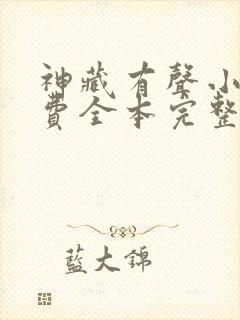 神藏有聲小
費全本完整
藍大錦